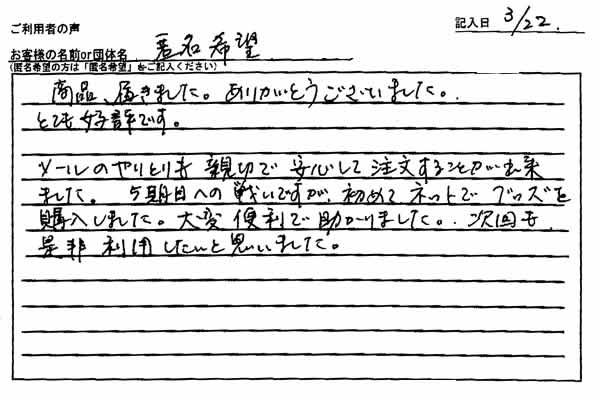 ご利用者の声
記入日 3/22.
お客様の名前or団体名 匿名希望
(匿名希望の方は「匿名希望」をご記入ください)
商品、届きました。ありがとうございました。
とても好評です。
メールのやりとりも親切で安心して注文することが出来
ました。 への戦いですが、初めてネットでグッズを
購入しました。大変便利で助かりました。次回も、
是非利用したいと思いました。